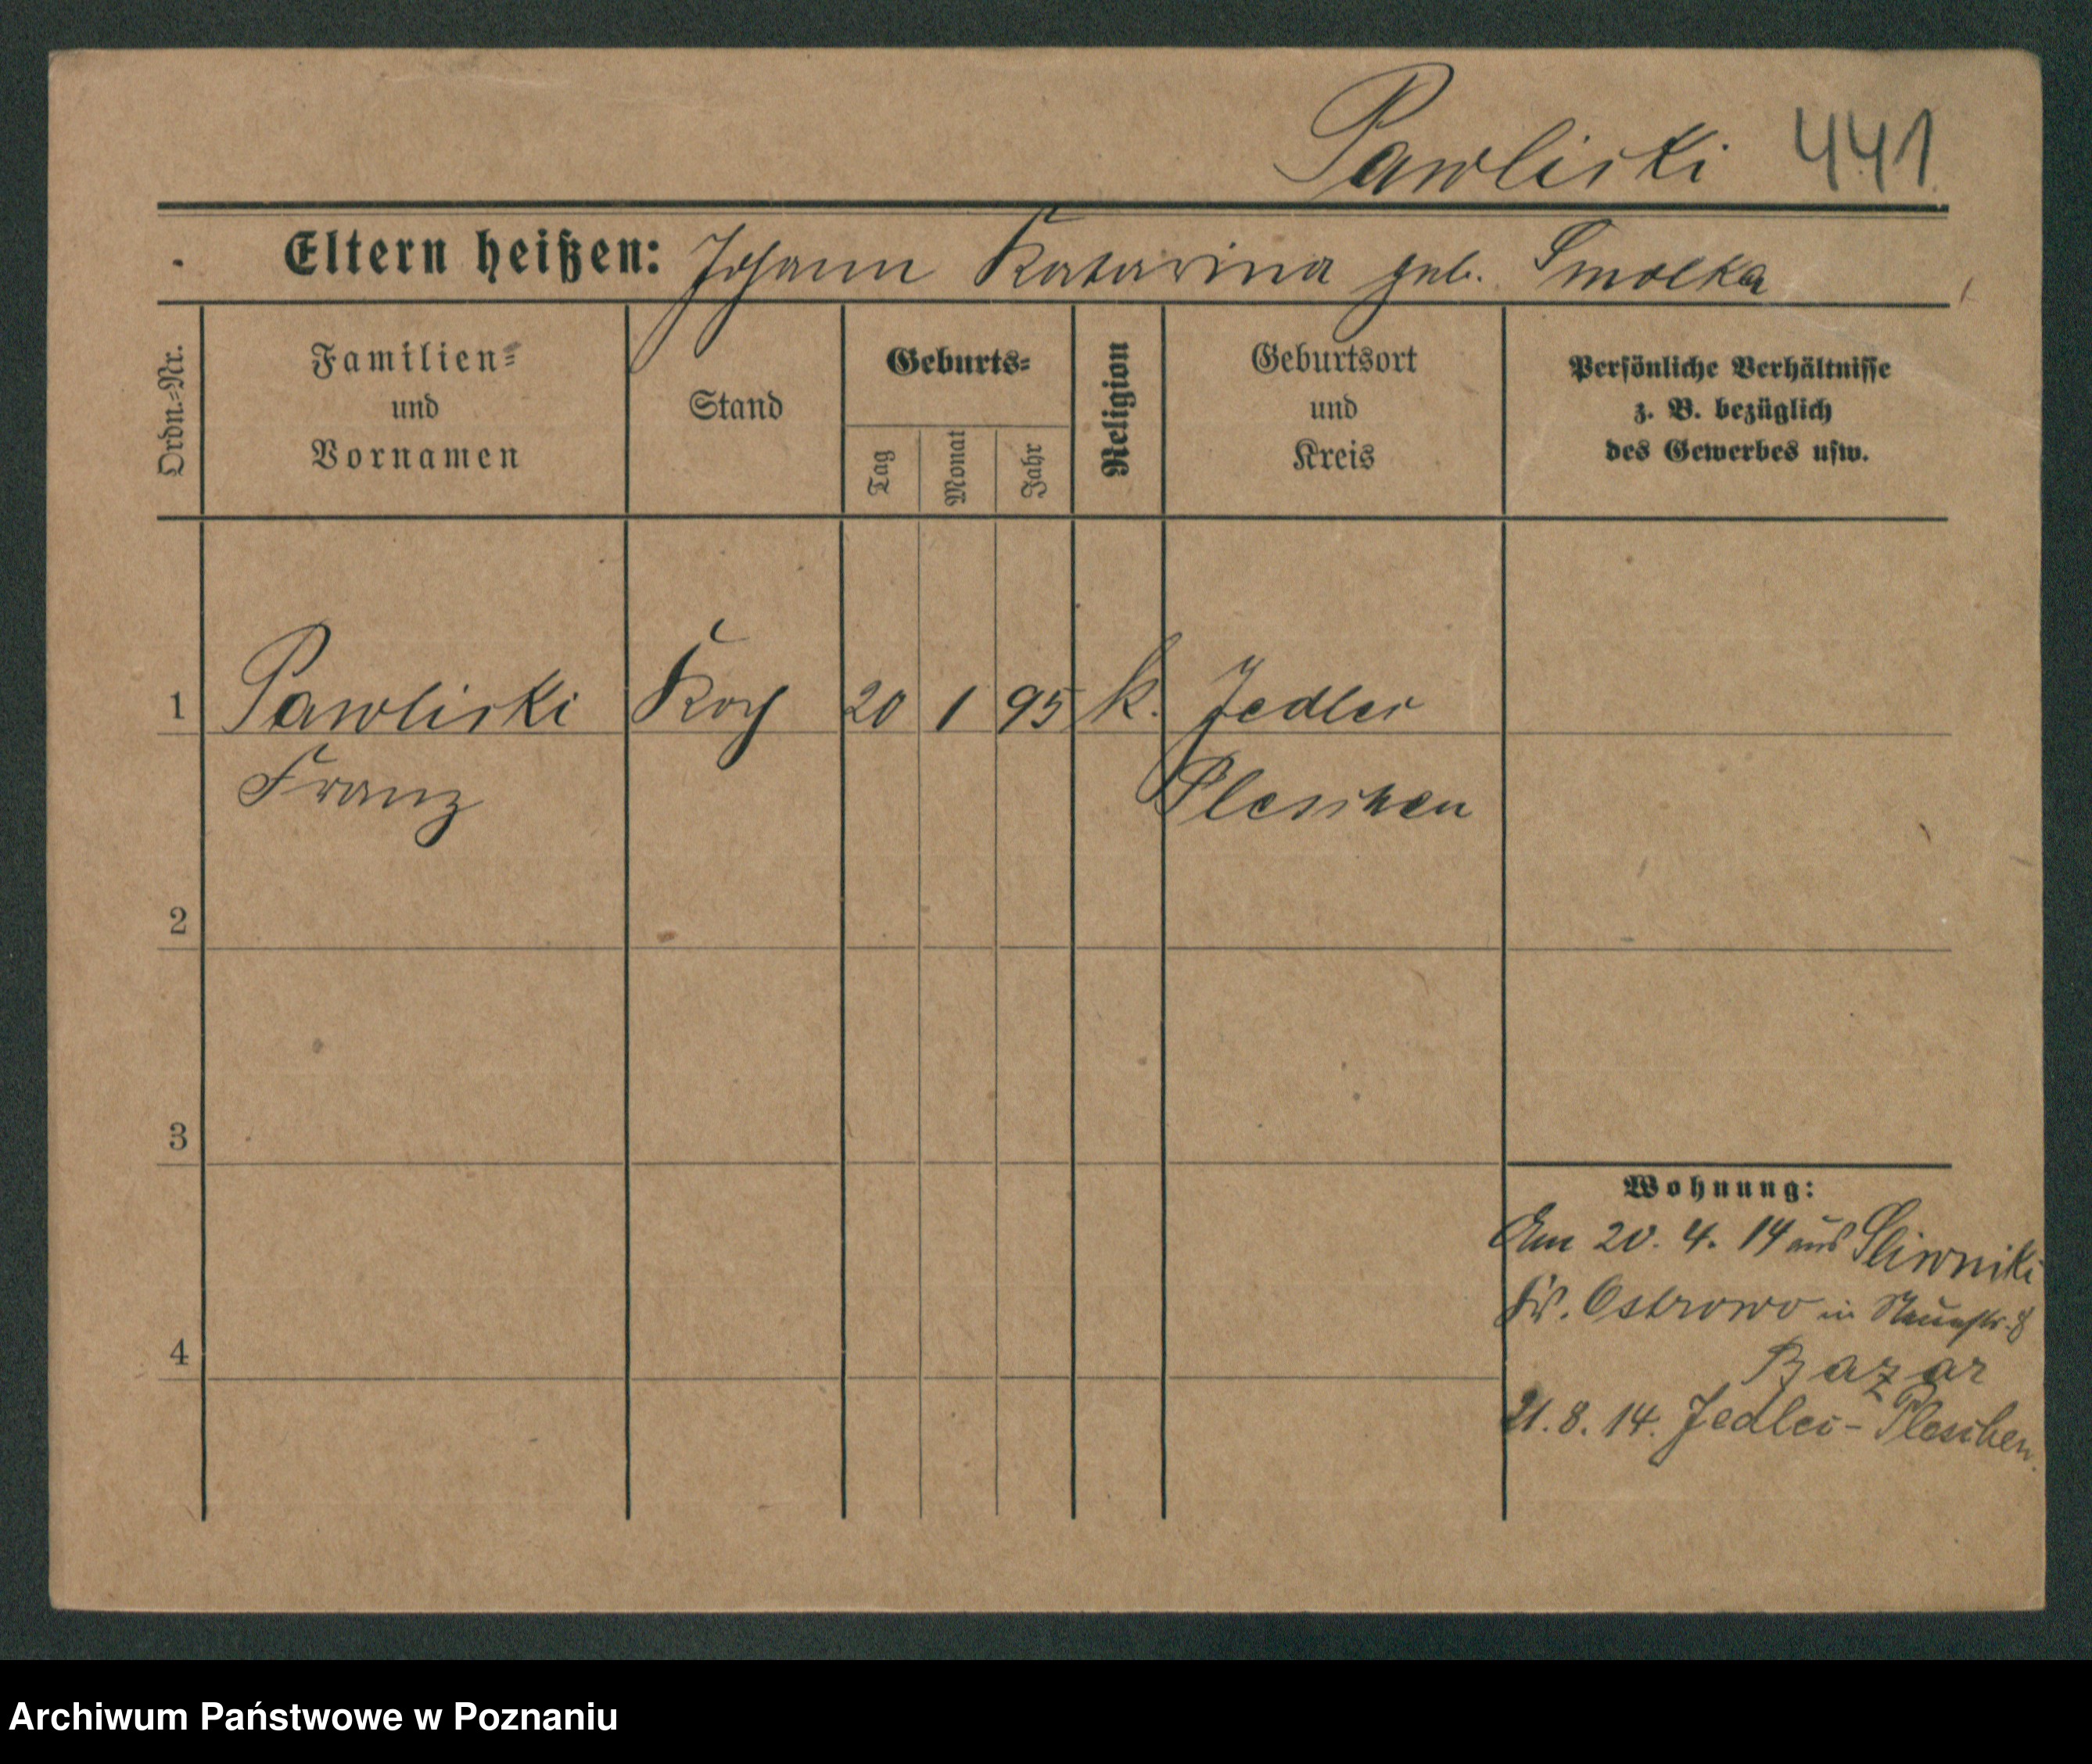 Pawliski 441
Eltern heißen: Johann Katarina geb. Smolka
Ordn.-Nr.
Familien-
und
Vornamen
Stand
Geburts-
Tag
Monat
Jahr
Religion
Geburtsort
und
Kreis
Persönliche Verhältnisse
z. B. bezüglich
des Gewerbes usw.
1 Pawliski Koch 20 1 95 k. Jedlec
Franz Pleschen
2
3
4
Wohnung:
Am 20. 4. 14 aus Sliwniki
Kr. Ostrowo in
Bazar
21. 8. 14. Jedlec - Pleschen.
Archiwum Państwowe w Poznaniu